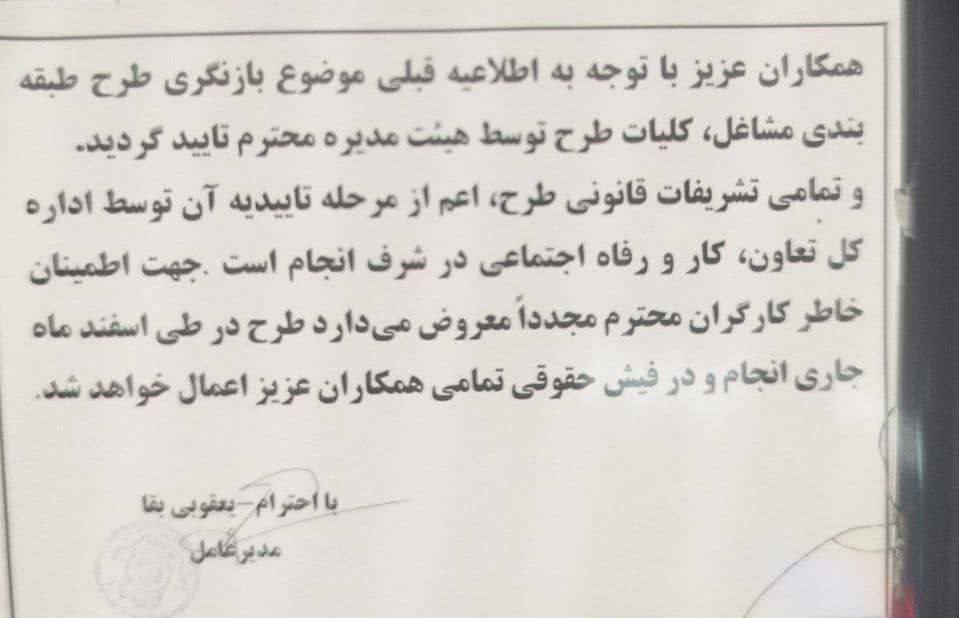 همکاران عزیز با توجه به اطلاعیه قبلی موضوع بازنگری طرح طبقه
بندی مشاغل، کلیات طرح توسط هیئت مدیره محترم تایید گردید.
و تمامی تشریفات قانونی طرح، اعم از مرحله تاییدیه آن توسط اداره
کل تعاون، کار و رفاه اجتماعی در شرف انجام است .جهت اطمینان
خاطر کارگران محترم مجدداً معروض می‌دارد طرح در طی اسفند ماه
جاری انجام و در فیش حقوقی تمامی همکاران عزیز اعمال خواهد شد.
با احترام-یعقوبی بقا
مدیرعامل